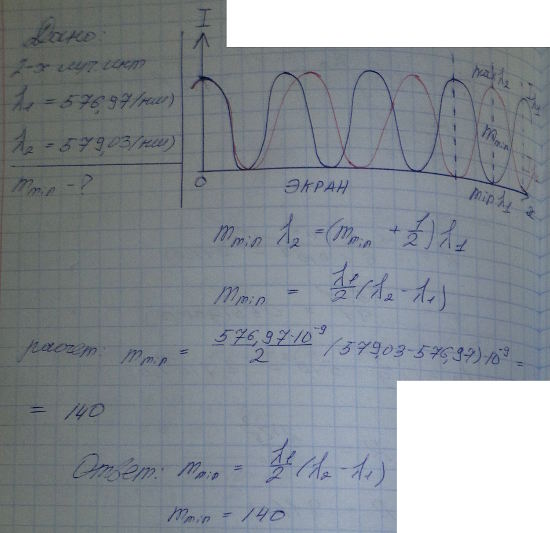 Дано:
2-х луч инт
λ1 = 576,97 (нм)
λ2 = 579,03 (нм)
m min - ?
I
max λ2
λ1
m min
min λ1
0
ЭКРАН
x
m min λ2 = (m min + 1/2) λ1
m min = λ1/2 (λ2 - λ1)
расчет: m min = 576,97·10^-9/2 (579,03-576,97)·10^-9 =
= 140
Ответ: m min = λ1/2 (λ2 - λ1)
m min = 140